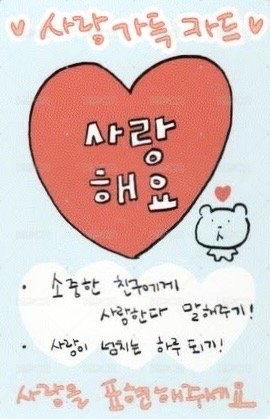 ♥ 사랑 가득 카드 ♥
사랑
해요
· 소중한 친구에게
사랑한다 말해주기!
· 사랑이 넘치는 하루 되기!
사랑을 표현해주세요